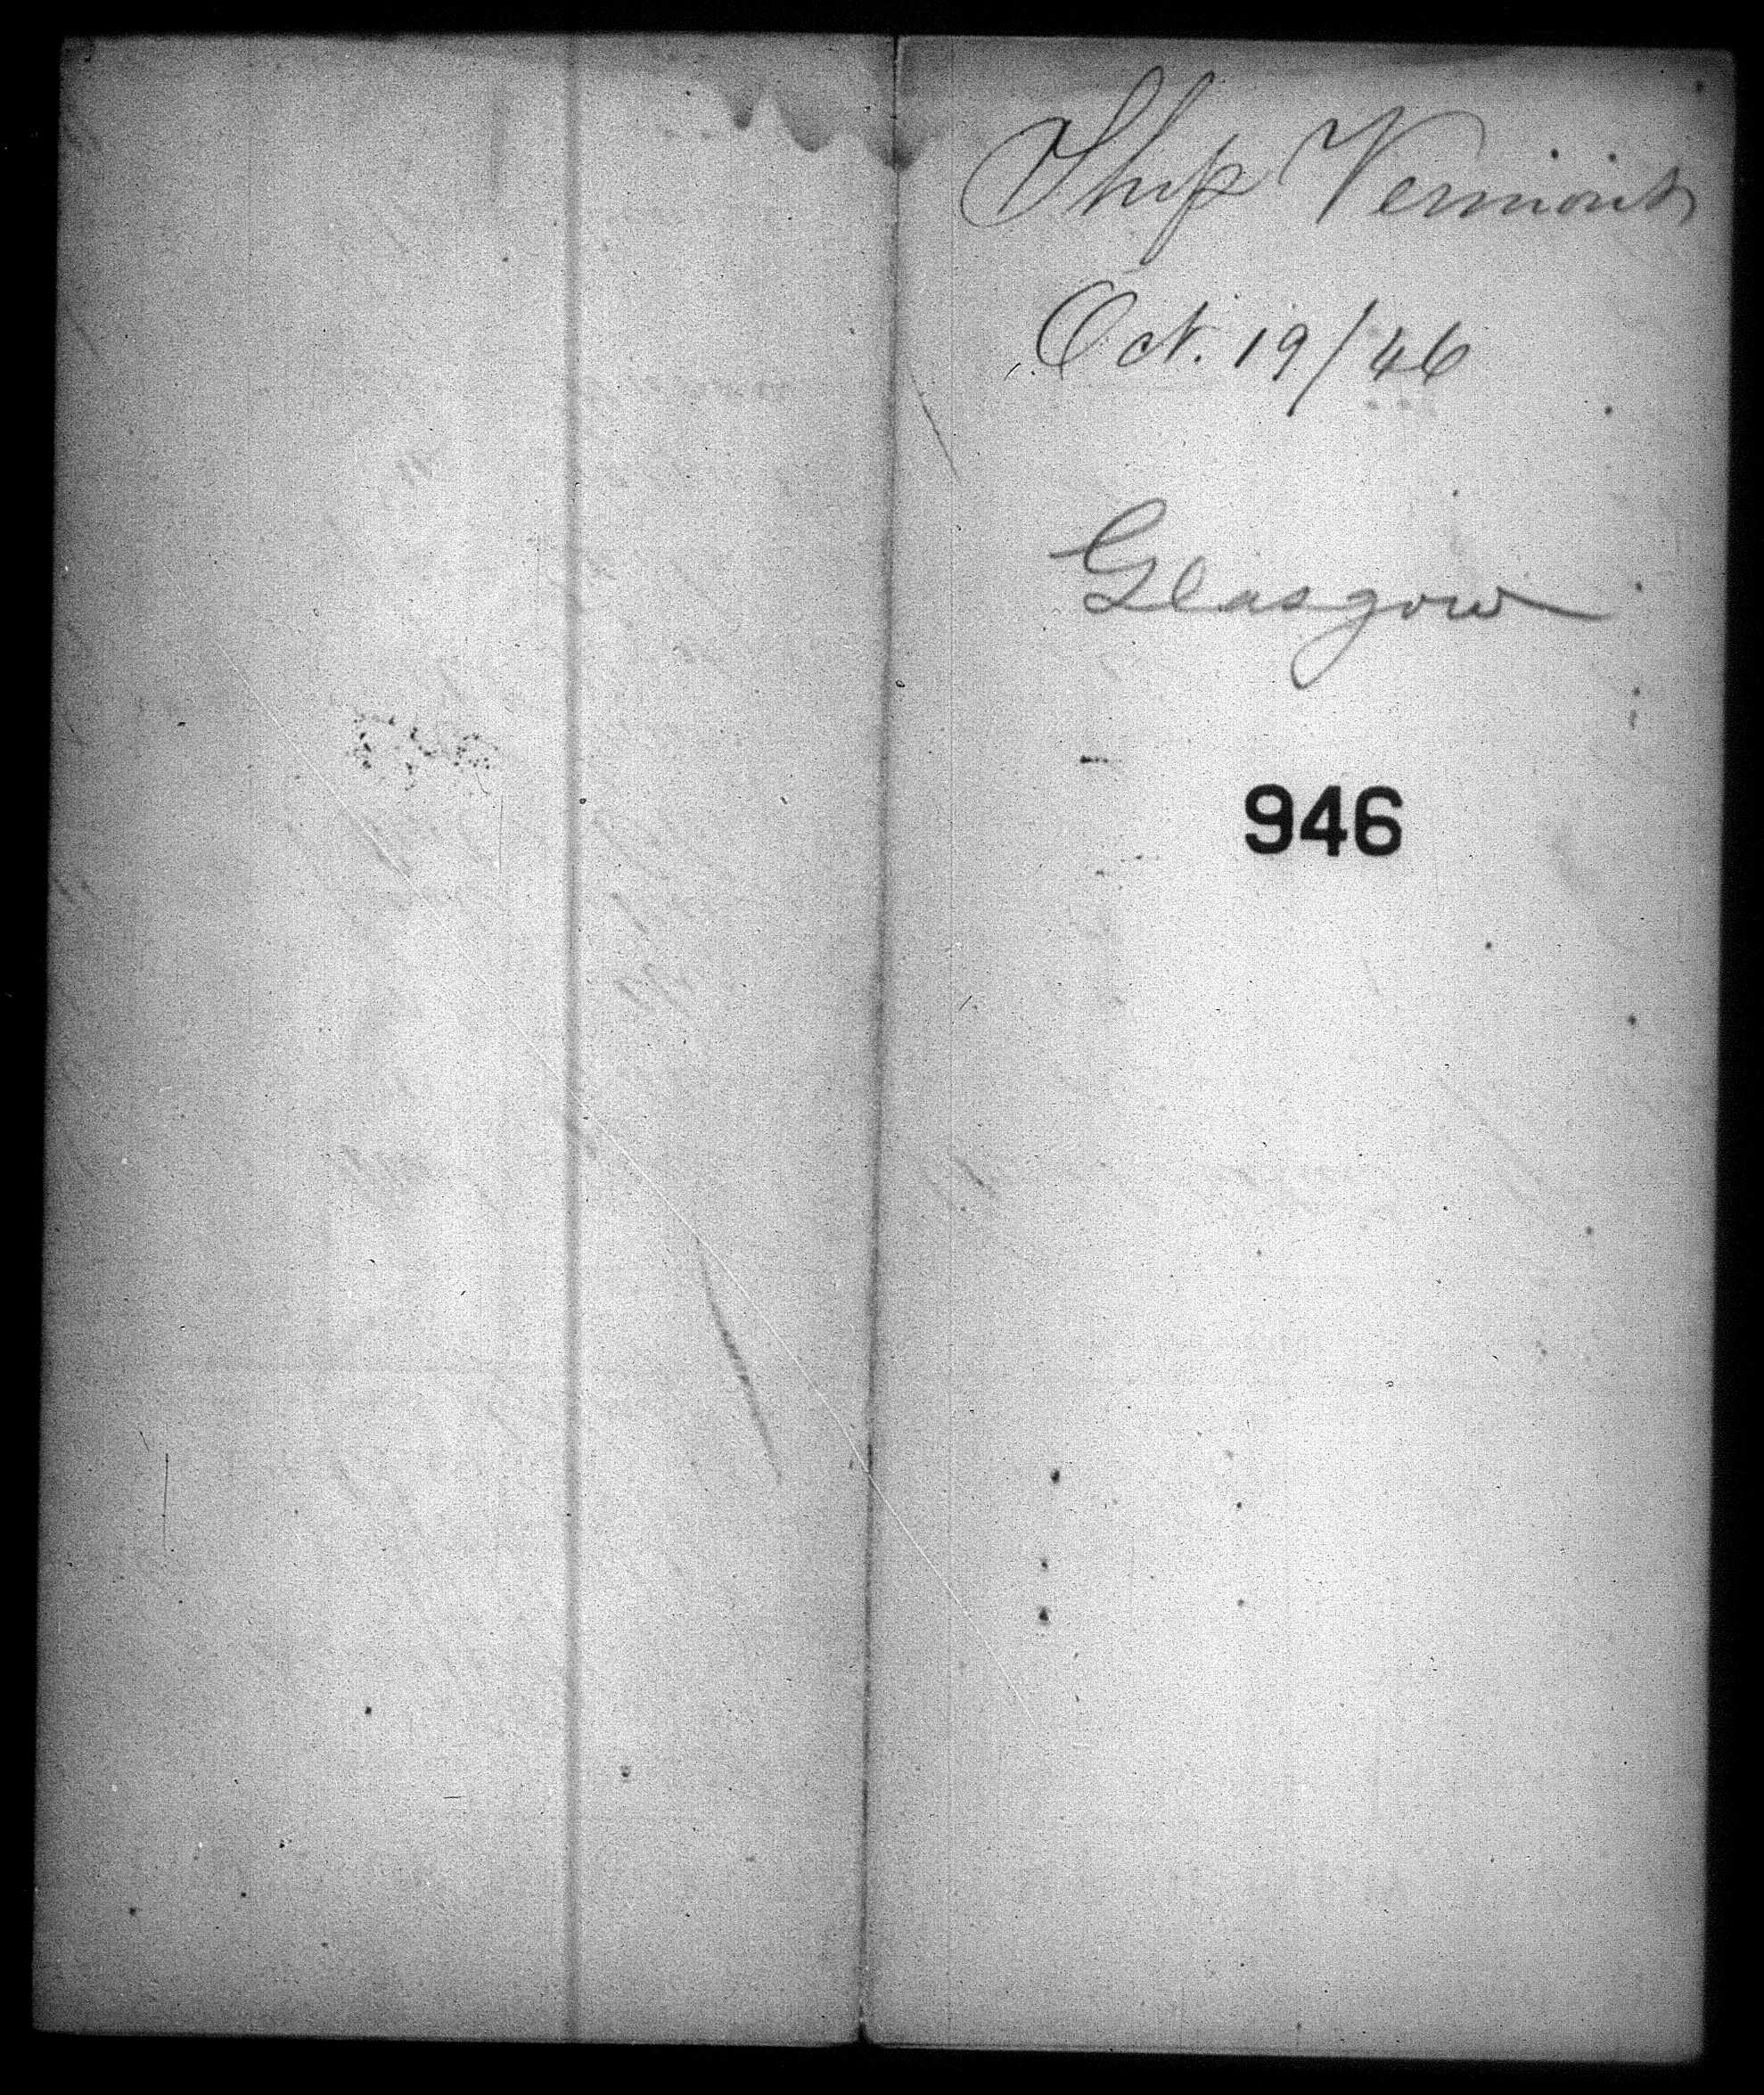 Ship Vermont
Oct. 19/46
Glasgow
946